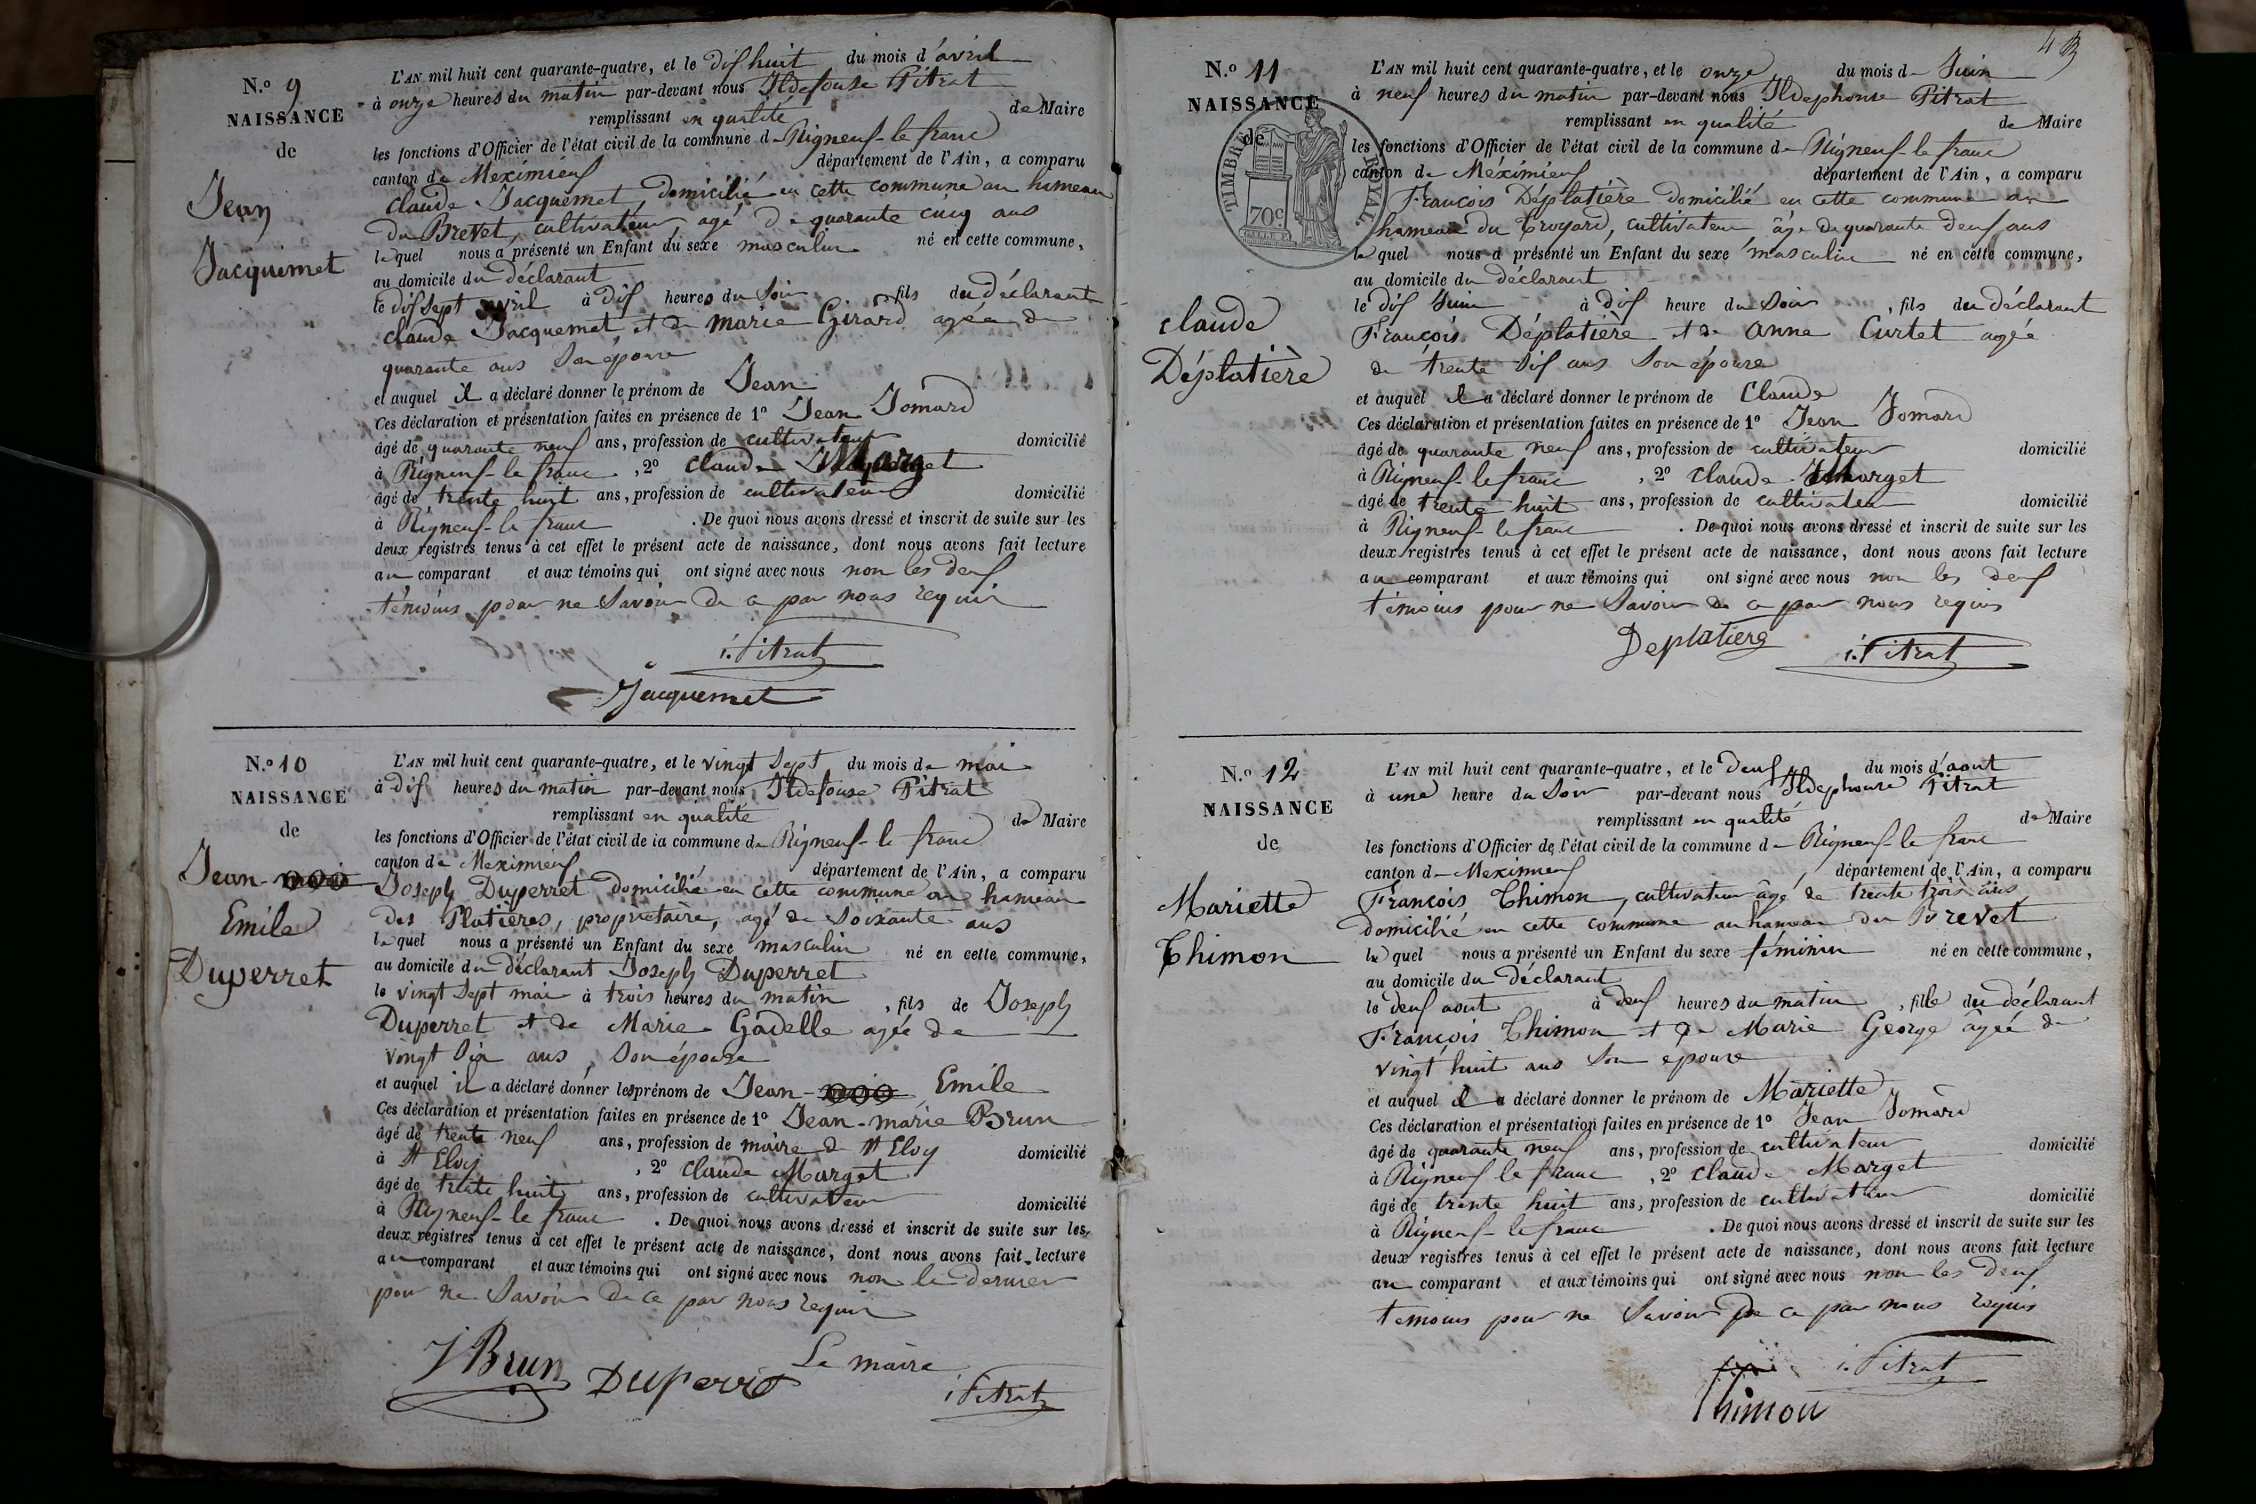 N.o 9
NAISSANCE
de
Jean
Jacquemet
L'AN mil huit cent quarante-quatre, et le dix huit du mois d'avril
à onze heures du matin par-devant nous Ildefonse Pitrat
remplissant en qualité de Maire
les fonctions d'Officier de l'état civil de la commune de Rigneux-le franc
canton de Meximieux département de l'Ain, a comparu
Claude Jacquemet, domicilié en cette commune au hameau
du Brevet, cultivateur, agé de quarante cinq ans
lequel nous a présenté un Enfant du sexe masculin né en cette commune,
au domicile du déclarant
le dix sept avril à dix heures du soir fils du déclarant
claude Jacquemet et de marie Girard agée de
quarante ans son épouse
et auquel il a déclaré donner le prénom de Jean
Ces déclaration et présentation faites en présence de 1o Jean Jomard
âgé de quarante neuf ans, profession de cultivateur domicilié
à Rigneux-le franc, 2o claude Marget
âgé de trente huit ans, profession de cultivateur domicilié
à Rigneux-le franc. De quoi nous avons dressé et inscrit de suite sur les
deux registres tenus à cet effet le présent acte de naissance, dont nous avons fait lecture
au comparant et aux témoins qui ont signé avec nous non les deux
témoins pour ne savoir de ce par nous requis
i. Pitrat
Jacquemet
N.o 10
NAISSANCE
de
Jean-
Emile
Duperret
L'AN mil huit cent quarante-quatre, et le vingt sept du mois de mai
à dix heures du matin par-devant nous Ildefonse Pitrat
remplissant en qualité de Maire
les fonctions d'Officier de l'état civil de la commune de Rigneux-le franc
canton de Meximieux département de l'Ain, a comparu
Joseph Duperret domicilié en cette commune au hameau
des Platières, propriétaire, agé de soixante ans
lequel nous a présenté un Enfant du sexe masculin né en cette commune,
au domicile du déclarant Joseph Duperret
le vingt sept mai à trois heures du matin, fils de Joseph
Duperret et de Marie Gadelle agée de
vingt six ans, son épouse
et auquel il a déclaré donner les prénom de Jean- Emile
Ces déclaration et présentation faites en présence de 1o Jean-marie Brun
âgé de trente neuf ans, profession de maire de St Eloy domicilié
à St Eloy, 2o claude Marget
âgé de trente huit ans, profession de cultivateur domicilié
à Rigneux-le franc. De quoi nous avons dressé et inscrit de suite sur les
deux registres tenus à cet effet le présent acte de naissance, dont nous avons fait lecture
au comparant et aux témoins qui ont signé avec nous non le dernier
pour ne savoir de ce par nous requis
J Brun Duperret Le maire
i Pitrat
N.o 11
NAISSANCE
de
TIMBRE ROYAL
70c
claude
Déplatière
L'AN mil huit cent quarante-quatre, et le onze du mois de Juin
à neuf heures du matin par-devant nous Ildephonse Pitrat
remplissant en qualité de Maire
les fonctions d'Officier de l'état civil de la commune de Rigneux-le franc
canton de Méximieux département de l'Ain, a comparu
François Déplatière domicilié en cette commune au
hameau du Troyard, cultivateur âgé de quarante deux ans
lequel nous a présenté un Enfant du sexe masculin né en cette commune,
au domicile du déclarant
le dix Juin à dix heure du soir, fils du déclarant
François Déplatière et de Anne Curtet agée
de trente six ans son épouse
et auquel il a déclaré donner le prénom de Claude
Ces déclaration et présentation faites en présence de 1o Jean Jomard
âgé de quarante neuf ans, profession de cultivateur domicilié
à Rigneux-le franc, 2o claude Marget
âgé de trente huit ans, profession de cultivateur domicilié
à Rigneux-le franc. De quoi nous avons dressé et inscrit de suite sur les
deux registres tenus à cet effet le présent acte de naissance, dont nous avons fait lecture
au comparant et aux témoins qui ont signé avec nous non les deux
témoins pour ne savoir de ce par nous requis
Deplatiere i. Pitrat
N.o 12
NAISSANCE
de
Mariette
Thimon
L'AN mil huit cent quarante-quatre, et le deux du mois d'aout
à une heure du soir par-devant nous Ildephonse Pitrat
remplissant en qualité de Maire
les fonctions d'Officier de l'état civil de la commune de Rigneux-le franc
canton de Meximieux département de l'Ain, a comparu
François Thimon, cultivateur âgé de trente trois ans
domicilié en cette commune au hameau du Brevet
lequel nous a présenté un Enfant du sexe féminin né en cette commune,
au domicile du déclarant
le deux aout à deux heures du matin, fille du déclarant
François Thimon et de Marie George âgée de
vingt huit ans son épouse
et auquel il a déclaré donner le prénom de Mariette
Ces déclaration et présentation faites en présence de 1o Jean Jomard
âgé de quarante neuf ans, profession de cultivateur domicilié
à Rigneux le franc, 2o claude Marget
âgé de trente huit ans, profession de cultivateur domicilié
à Rigneux-le franc. De quoi nous avons dressé et inscrit de suite sur les
deux registres tenus à cet effet le présent acte de naissance, dont nous avons fait lecture
au comparant et aux témoins qui ont signé avec nous non les deux
témoins pour ne savoir de ce par nous requis
i. Pitrat
Thimon